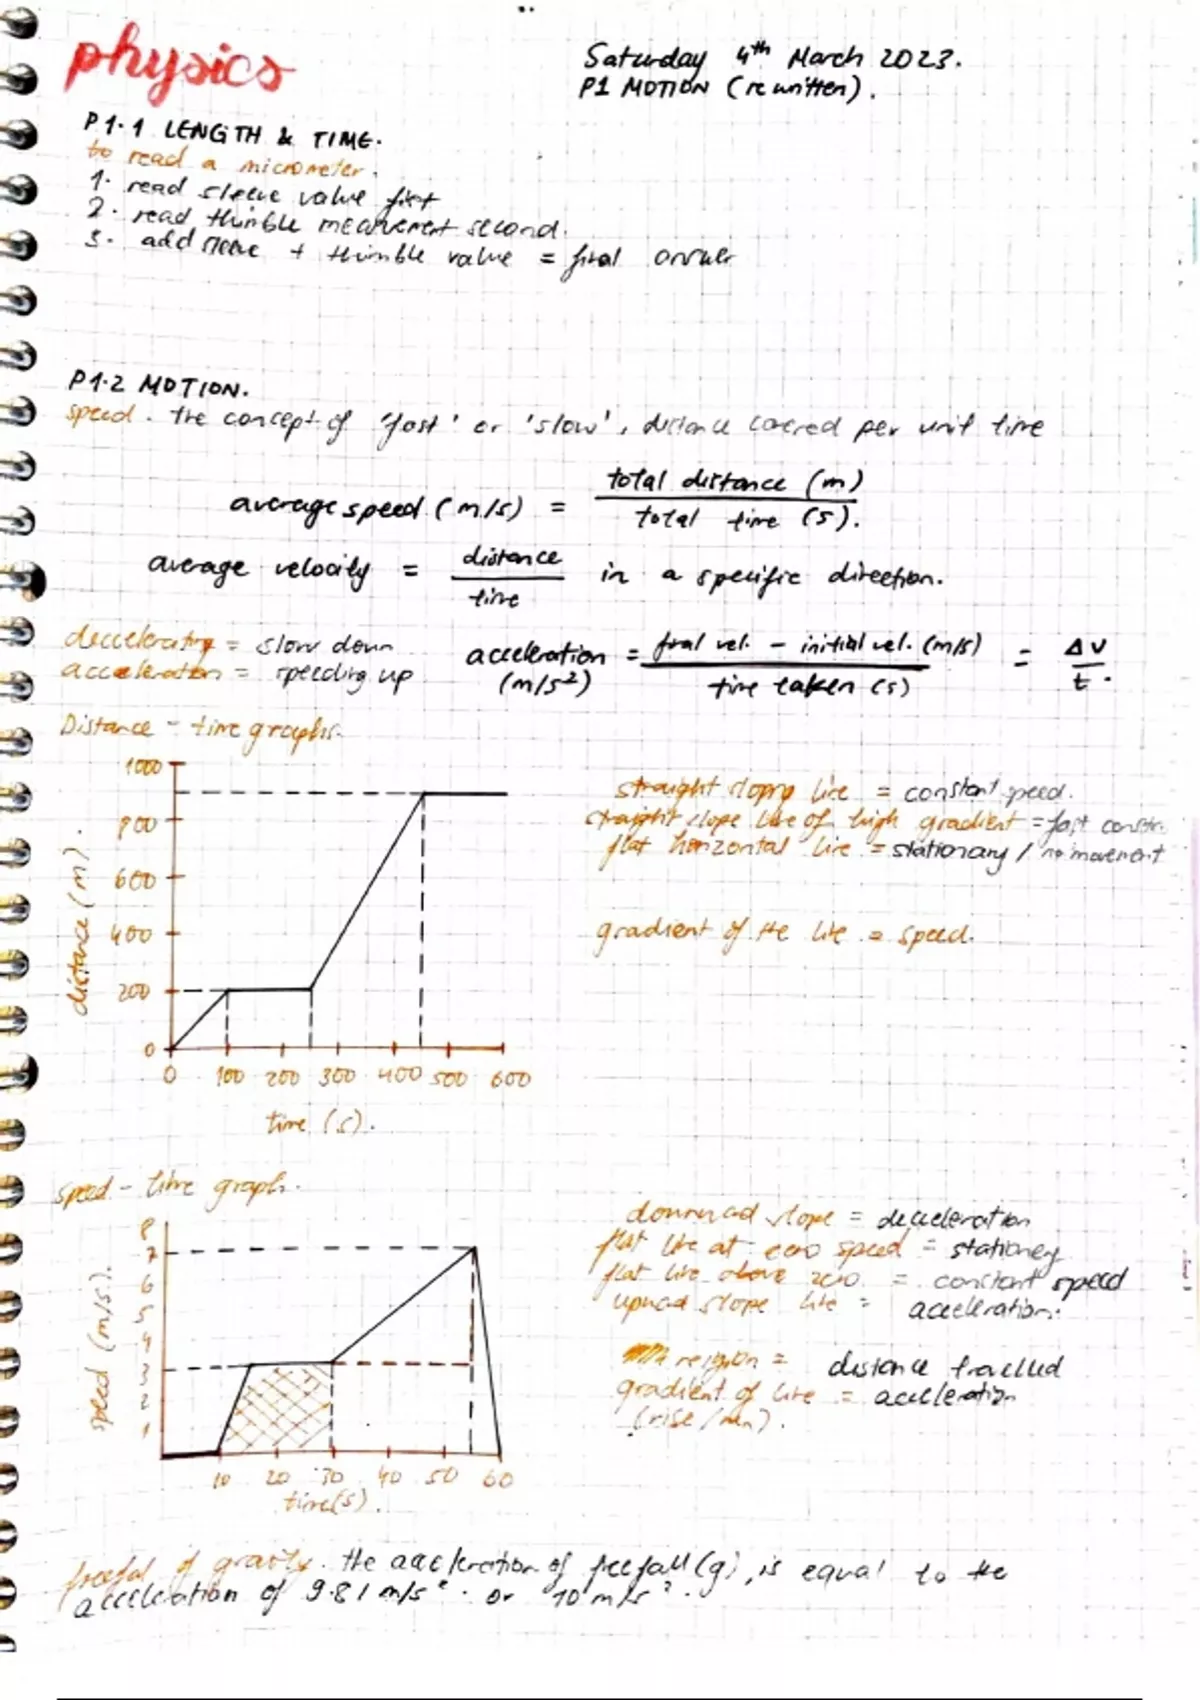 physics
Saturday 4th March 2023.
P1 MOTION (rewritten).
P1.1 LENGTH & TIME.
to read a micrometer.
1. read sleeve value first
2. read thimble measurement second.
3. add sleeve + thimble value = final answer
P1.2 MOTION.
speed. the concept of 'fast' or 'slow', distance covered per unit time
average speed (m/s) = total distance (m) / total time (s).
average velocity = distance / time in a specific direction.
deccelerating = slow down
acceleration = speeding up
acceleration (m/s²) = final vel. - initial vel. (m/s) / time taken (s) = Δv / t.
Distance - time graphs.
1000
800
600
400
200
0
distance (m).
0 100 200 300 400 500 600
time (s).
straight slopng line = constant speed.
straight slope line of high gradient = fast constr.
flat horizontal line = stationary / no movement
gradient of the line = speed.
speed - time graph.
8
7
6
5
4
3
2
1
speed (m/s).
10 20 30 40 50 60
time(s).
downward slope = decceleration
flat line at zero speed = stationery
flat line above zero = constant speed
upward slope line = acceleration.
reigion = distance travelled
gradient of line = acceleration
(rise/run).
freefal of gravity. the acceleration of freefall (g), is equal to the
acceleration of 9.81 m/s². or 10 m/s².